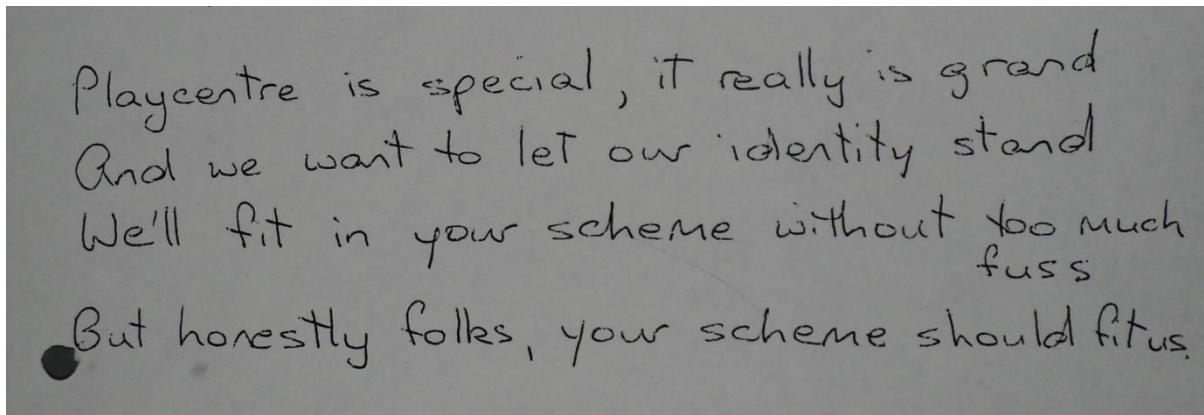 Playcentre is special, it really is grand
And we want to let our identity stand
We'll fit in your scheme without too much
fuss
But honestly folks, your scheme should fit us.